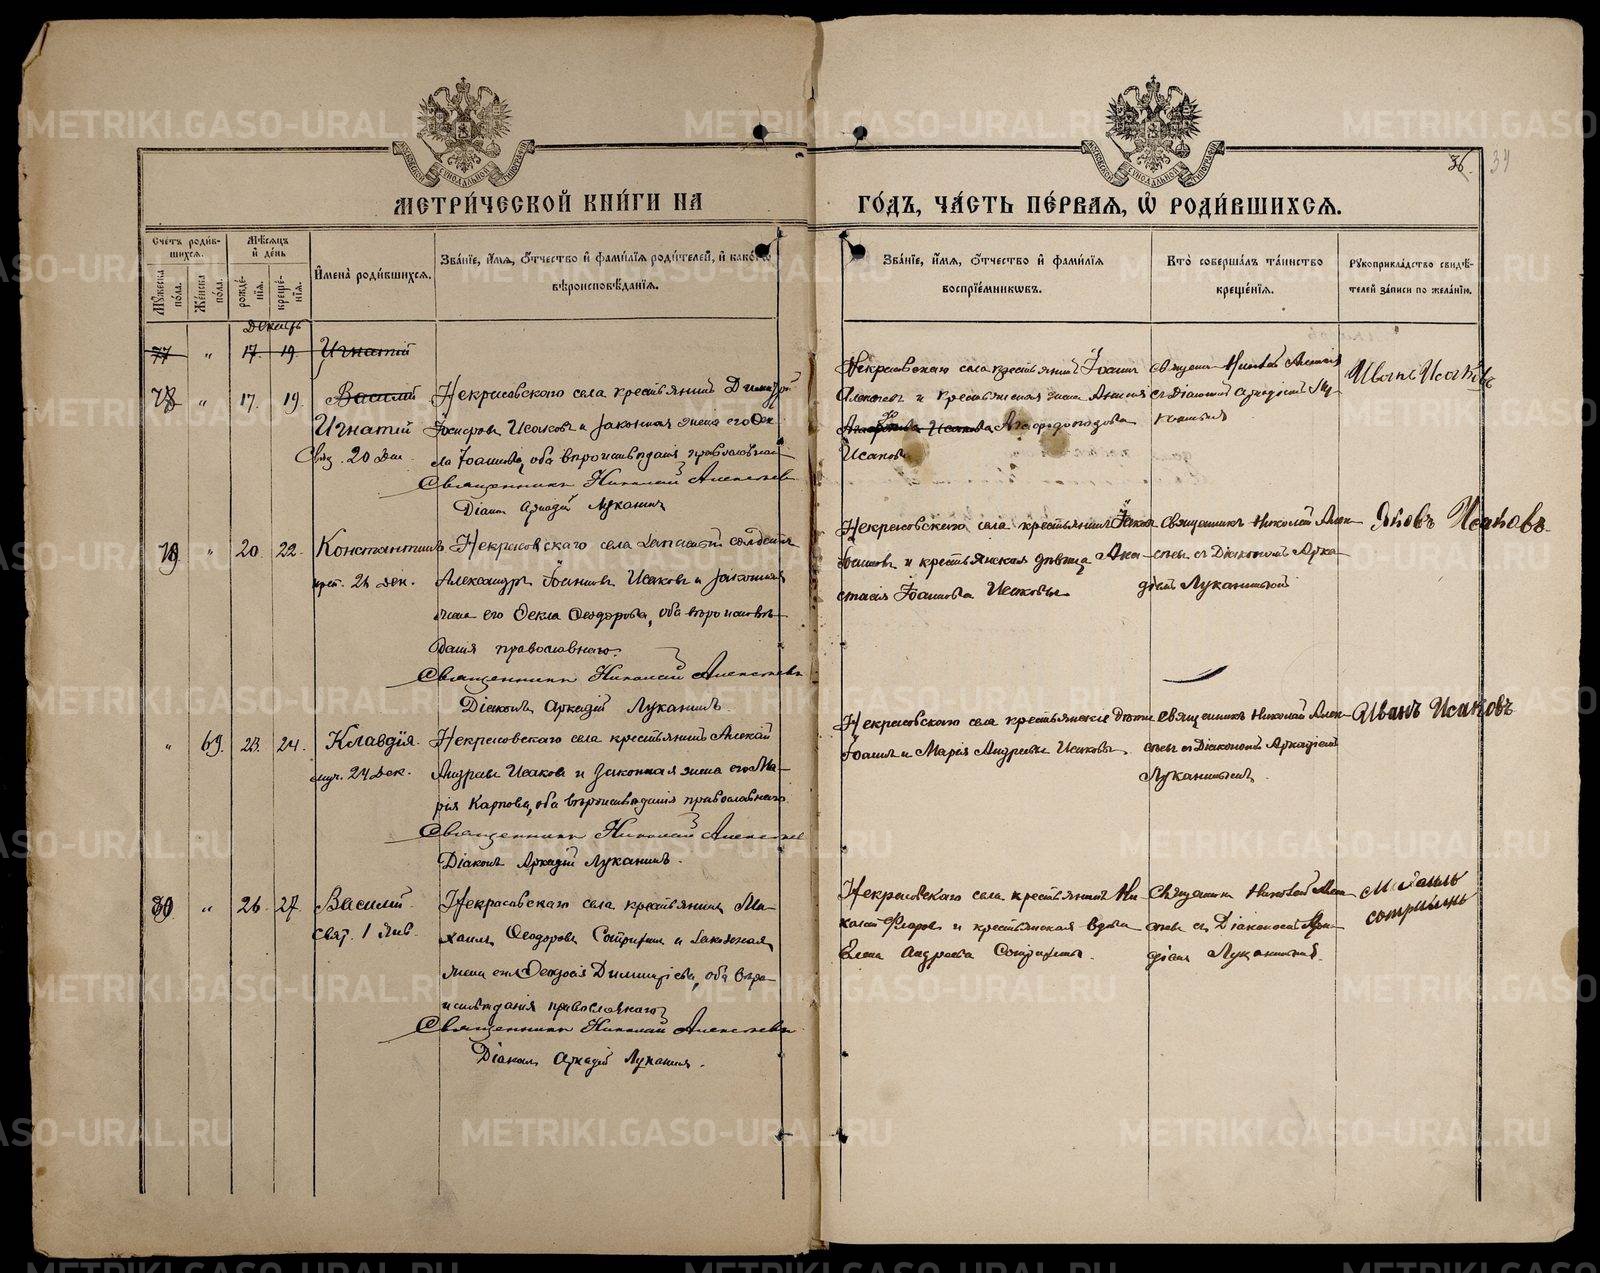 36. 34
МЕТРИ́ЧЕСКОЙ КНИ́ГИ НА ГО́ДЪ, ЧА́СТЬ ПЕ́РВАЯ, Ѡ҆ РОДИ́ВШИХСЯ.
Сче́тъ роди́вшихся.
Мꙋ́жеска по́ла.
Же́нска по́ла.
Мѣ́сяцъ и҆ де́нь
рожде́нїя.
креще́нїя.
И҆мена̀ роди́вшихся.
Зва́нїе, и҆́мя, ѻ҆́тчество и҆ фами́лїя роди́телей, и҆ како́гѡ
вѣроисповѣ́данїя.
Зва́нїе, и҆́мя, ѻ҆́тчество и҆ фами́лїя
воспрїе́мникѡвъ.
Кто̀ соверша́лъ та́инство
креще́нїя.
Рꙋкоприкла́дство свидѣ́-
телей за́писи по жела́нїю.
Декабрь
77 " 17. 19. Игнатій
78 " 17. 19. Василій
Игнатій
Свящ. 20 Дек.
Некрасовскаго села крестьянинъ Димитрій
Исаковъ и законная жена его
Іоаннова, оба вѣроисповѣданія православнаго
Священникъ Николай Алексѣевъ
Діаконъ Аркадій Луканинъ
Некрасовскаго села крестьянинъ Іоаннъ
и крестьянская жена Анисія
Исакова
Исакова
Священникъ Николай
съ Діакономъ Аркадіемъ Лу-
канинымъ
Иванъ Исаковъ
79 " 20. 22. Константинъ
20 Дек.
Некрасовскаго села запасный солдатъ
Александръ Іоанновъ Исаковъ и законная
жена его Ѳекла Ѳеодорова, оба вѣроисповѣ-
данія православнаго.
Священникъ Николай Алексѣевъ
Діаконъ Аркадій Луканинъ.
Некрасовскаго села крестьянинъ Іаковъ
Іоанновъ и крестьянская дѣвица Ана-
стасія Іоаннова Исаковы
Священникъ Николай Алек-
сѣевъ съ Діакономъ Арка-
діемъ Луканинымъ
Яковъ Исаковъ.
" 69. 23. 24. Клавдія.
муч. 24 Дек.
Некрасовскаго села крестьянинъ Алексѣй
Андреевъ Исаковъ и законная жена его Ма-
рія Карпова, оба вѣроисповѣданія православнаго
Священникъ Николай Алексѣевъ
Діаконъ Аркадій Луканинъ.
Некрасовскаго села крестьянскіе дѣти
Іоаннъ и Марія Андреевы Исаковы.
Священникъ Николай Алек-
сѣевъ съ Діакономъ Аркадіемъ
Луканинымъ.
Иванъ Исаковъ
80 " 26 27. Василій
Свят. 1 Янв.
Некрасовскаго села крестьянинъ Ми-
хаилъ Ѳеодоровъ и законная
жена его Ѳеодосія Димитріева, оба вѣро-
исповѣданія православнаго
Священникъ Николай Алексѣевъ
Діаконъ Аркадій Луканинъ.
Некрасовскаго села крестьянинъ Ни-
колай и крестьянская вдова
Елена Андреева
Священникъ Николай Алек-
сѣевъ съ Діакономъ Арка-
діемъ Луканинымъ.
Михаилъ
METRIKI.GASO-URAL.RU